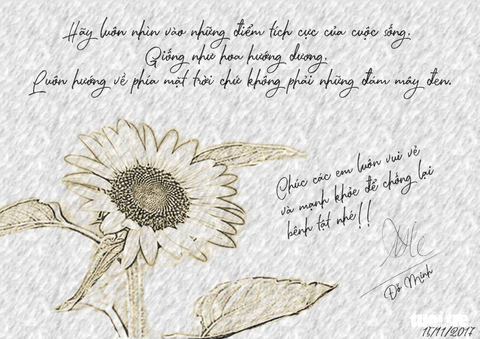 Hãy luôn nhìn vào những điểm tích cực của cuộc sống.
Giống như hoa hướng dương.
Luôn hướng về phía mặt trời chứ không phải những đám mây đen.
Chúc các em luôn vui vẻ
và mạnh khỏe để chống lại
bệnh tật nhé!!
Đỗ Minh
17/11/2017